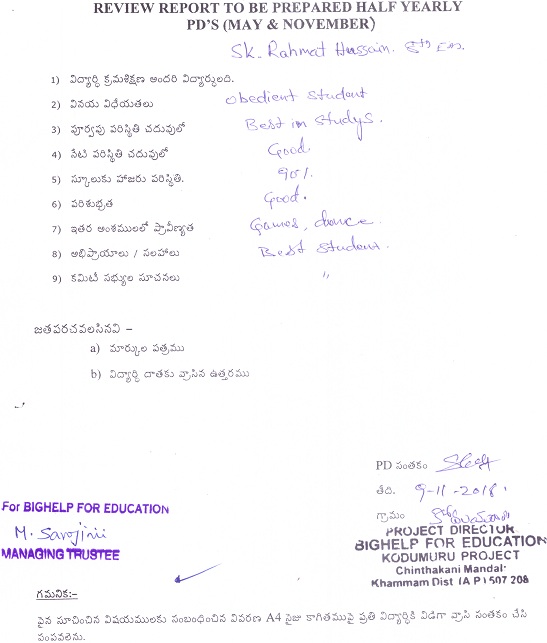 REVIEW REPORT TO BE PREPARED HALF YEARLY
PD'S (MAY & NOVEMBER)
Sk. Rahmat Hussain. 8th Em.
1) విద్యార్థి క్రమశిక్షణ అందరి విద్యార్థులది.
2) వినయ విధేయతలు obedient student
3) పూర్వపు పరిస్థితి చదువులో Best in studys.
4) నేటి పరిస్థితి చదువులో Good
5) స్కూలుకు హాజరు పరిస్థితి. 90%
6) పరిశుభ్రత Good.
7) ఇతర అంశములలో ప్రావీణ్యత Games, dance.
8) అభిప్రాయాలు / సలహాలు Best student.
9) కమిటీ సభ్యుల సూచనలు "
జతపరచవలసినవి –
a) మార్కుల పత్రము
b) విద్యార్థి దాతకు వ్రాసిన ఉత్తరము
PD సంతకం
తేది. 9-11-2018
గ్రామం
For BIGHELP FOR EDUCATION
M. Sarojini
MANAGING TRUSTEE
PROJECT DIRECTOR
BIGHELP FOR EDUCATION
KODUMURU PROJECT
Chinthakani Mandal
Khammam Dist (A P) 507 208
గమనిక:-
పైన సూచించిన విషయములకు సంబంధించిన వివరణ A4 సైజు కాగితముపై ప్రతి విద్యార్థికి విడిగా వ్రాసి సంతకం చేసి
పంపవలెను.